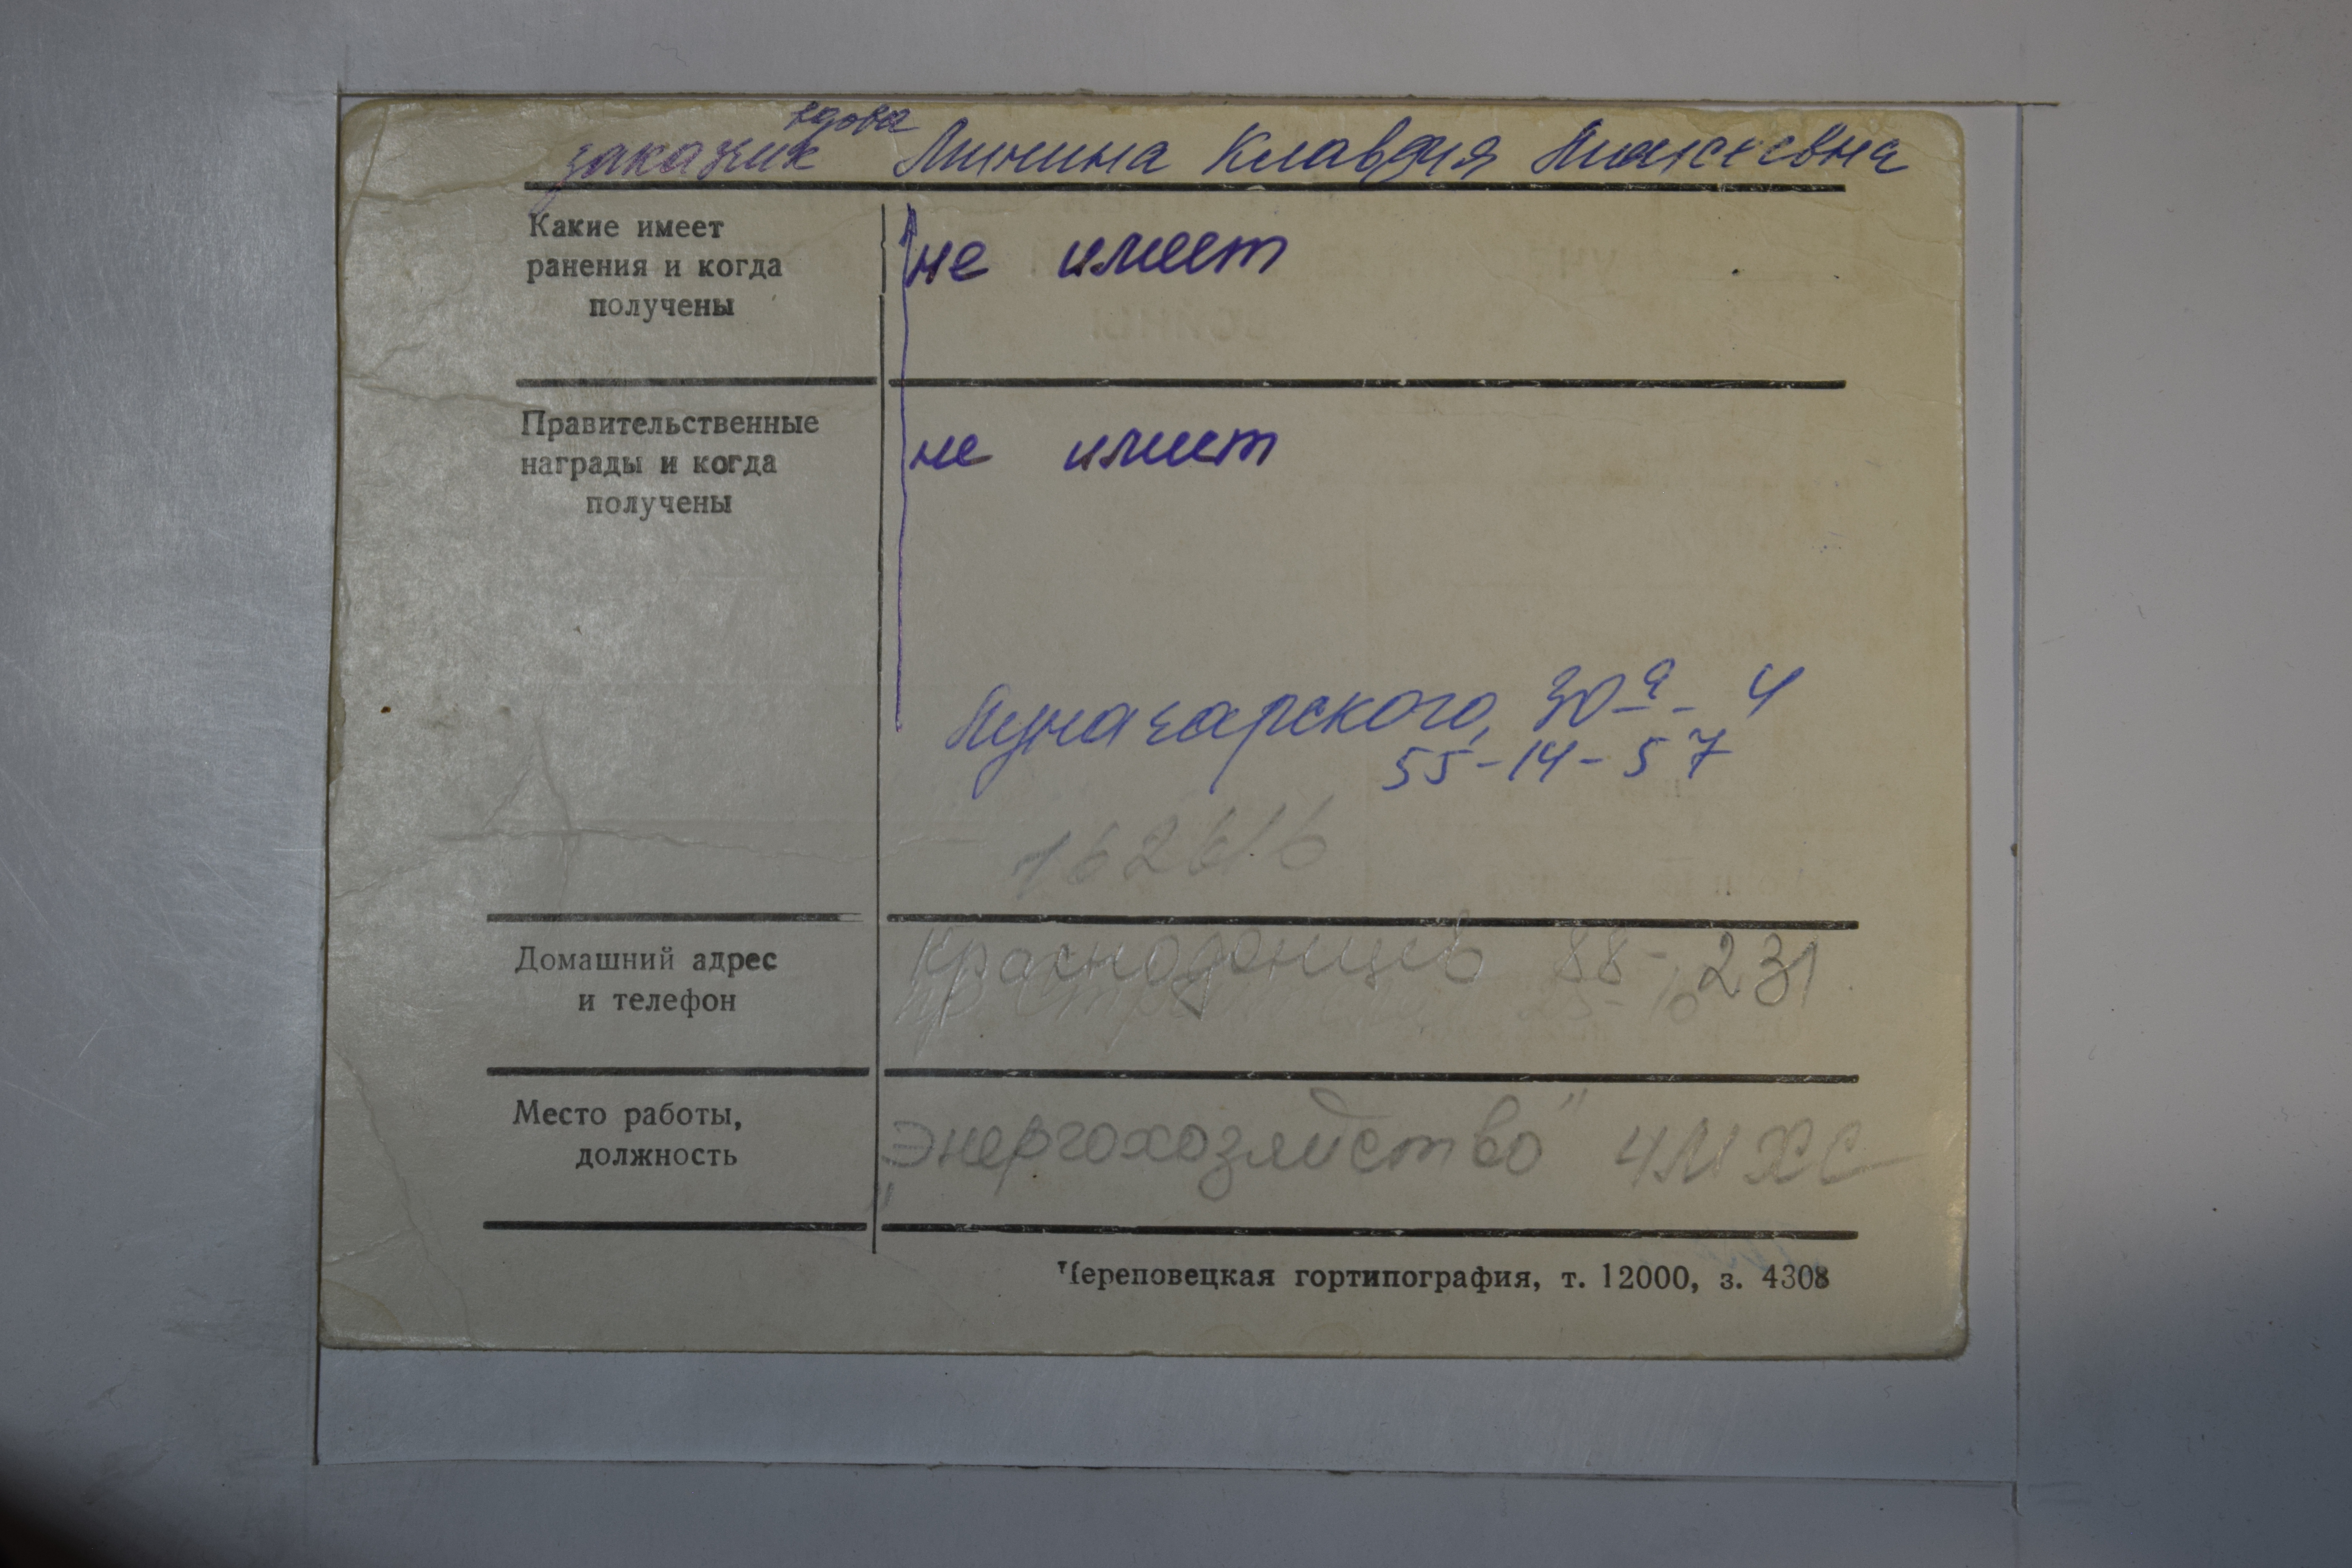 вдова
заказчик Минина Клавдия Алексеевна
Какие имеет
ранения и когда
получены
не имеет
Правительственные
награды и когда
получены
не имеет
Луначарского, 30а - 4
55-14-57
162616
Домашний адрес
и телефон
Краснодонцев 88-231
Место работы,
должность
"Энергохозяйство" ЧМХС
Череповецкая гортипография, т. 12000, з. 4308